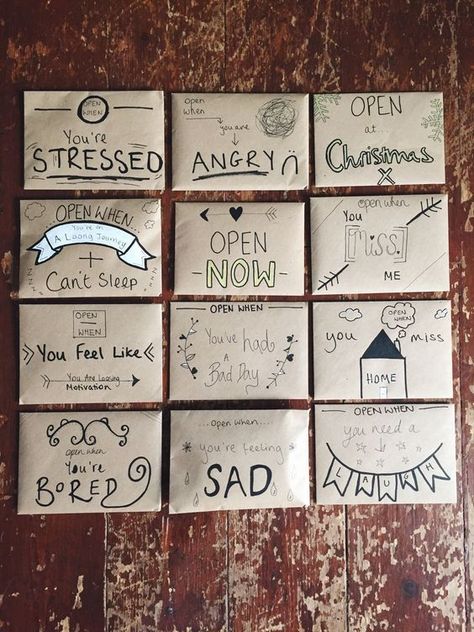 OPEN
WHEN
You're
STRESSED
open
when
you are
ANGRY
OPEN
at
Christmas
X
OPEN WHEN...
You're on
A Loong Journey
+
Can't SLEEP
OPEN
NOW
open when
You
Miss
ME
OPEN
WHEN
You FEEL LiKE
You Are Loosing
Motivation
OPEN WHEN
You've had
A
Bad Day
OPEN
WHEN
you miss
HOME
open
when
You're
BORED
...open when...
you're feeling
SAD
OPEN WHEN
you need
a
LAUGH